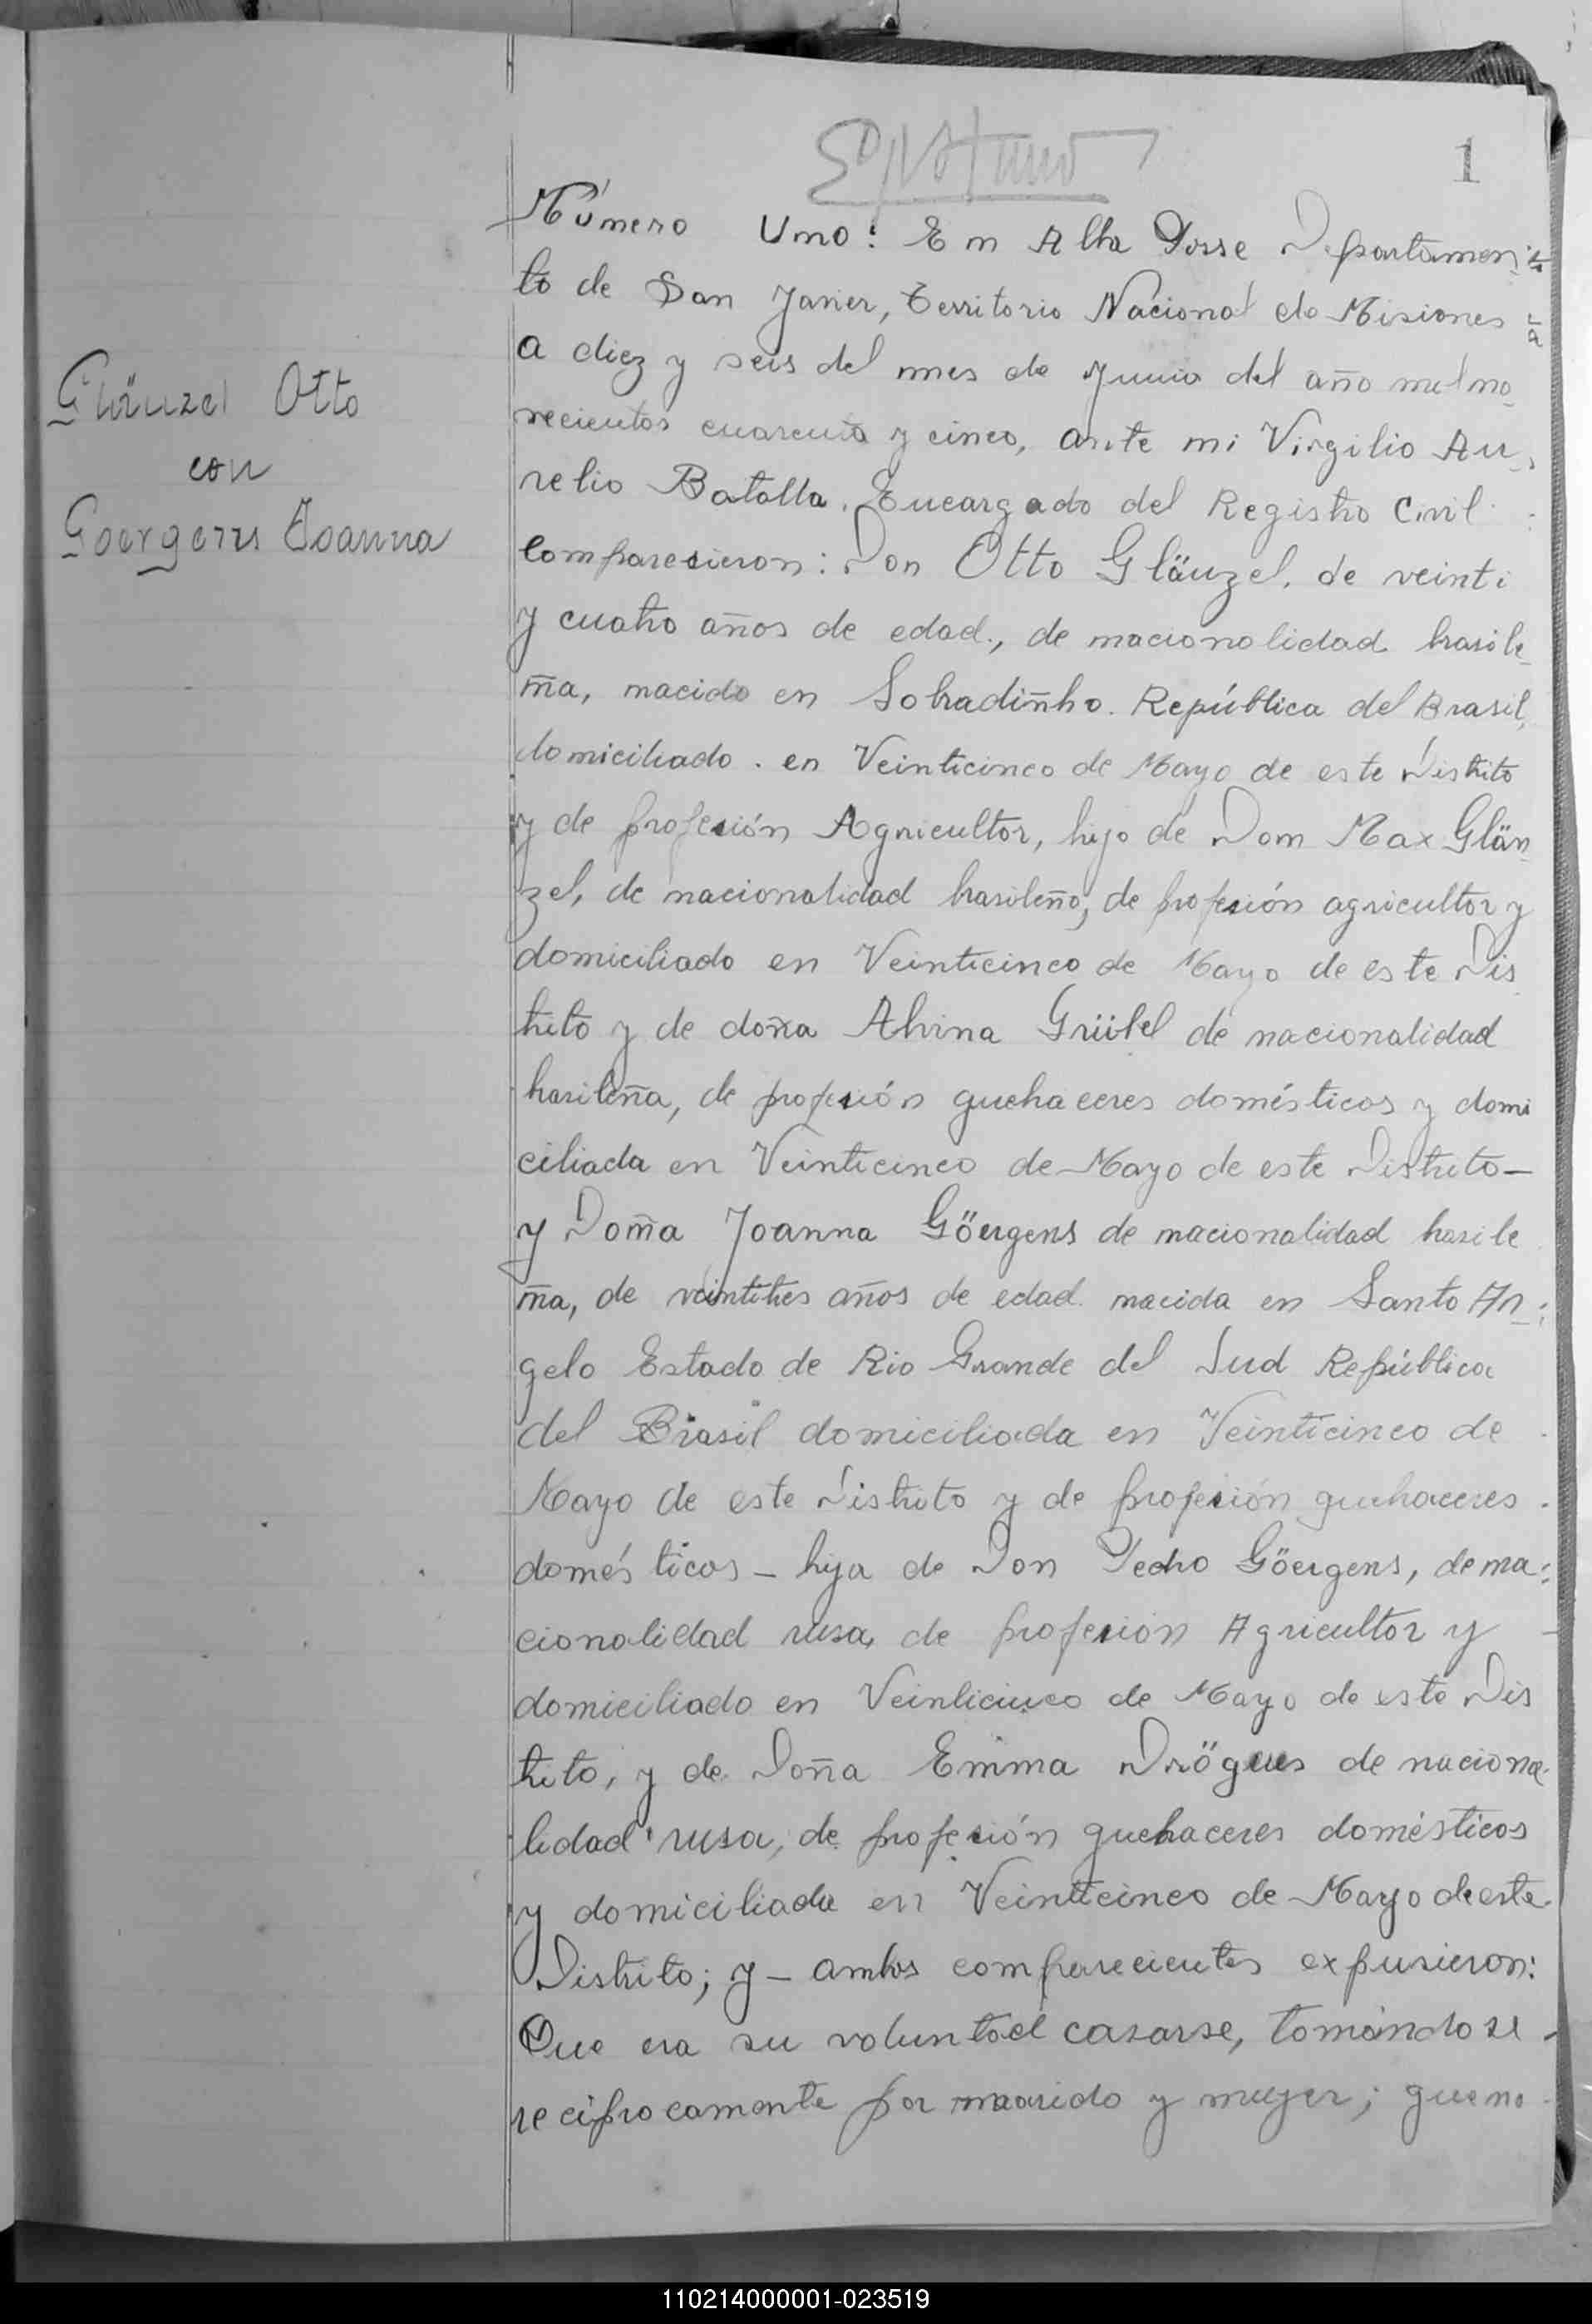 1
Número Uno: En Alba Posse Departamen
to de San Javier, Territorio Nacional de Misiones
a diez y seis del mes de Junio del año mil no
vecientos cuarenta y cinco, ante mi Virgilio Au
relio Batalla, Encargado del Registro Civil
Glänzel Otto
con
Goergens Joanna
comparecieron: Don Otto Glänzel, de veinti
y cuatro años de edad, de nacionalidad brasile
ña, nacido en Sobradiñho. República del Brasil,
domiciliado en Veinticinco de Mayo de este Distrito
y de profesión Agricultor, hijo de Don Max Glän
zel, de nacionalidad brasileño, de profesión agricultor y
domiciliado en Veinticinco de Mayo de este Dis
trito y de doña de nacionalidad
brasileña, de profesión quehaceres domésticos y domi
ciliada en Veinticinco de Mayo de este Distrito—
y Doña Joanna Göergens de nacionalidad brasile
ña, de veintitres años de edad nacida en Santo An
gelo Estado de Rio Grande del Sud República
del Brasil domiciliada en Veinticinco de
Mayo de este Distrito y de profesión quehaceres
domésticos — hija de Don Pedro Göergens, de na
cionalidad rusa, de profesión Agricultor y
domiciliado en Veinticinco de Mayo de este Dis
trito, y de Doña Emma de naciona
lidad rusa, de profesión quehaceres domésticos
y domiciliada en Veinticinco de Mayo de este
Distrito; y — ambos comparecientes expusieron:
Que era su voluntad casarse, tomándose
recíprocamente por marido y mujer; que no
110214000001-023519